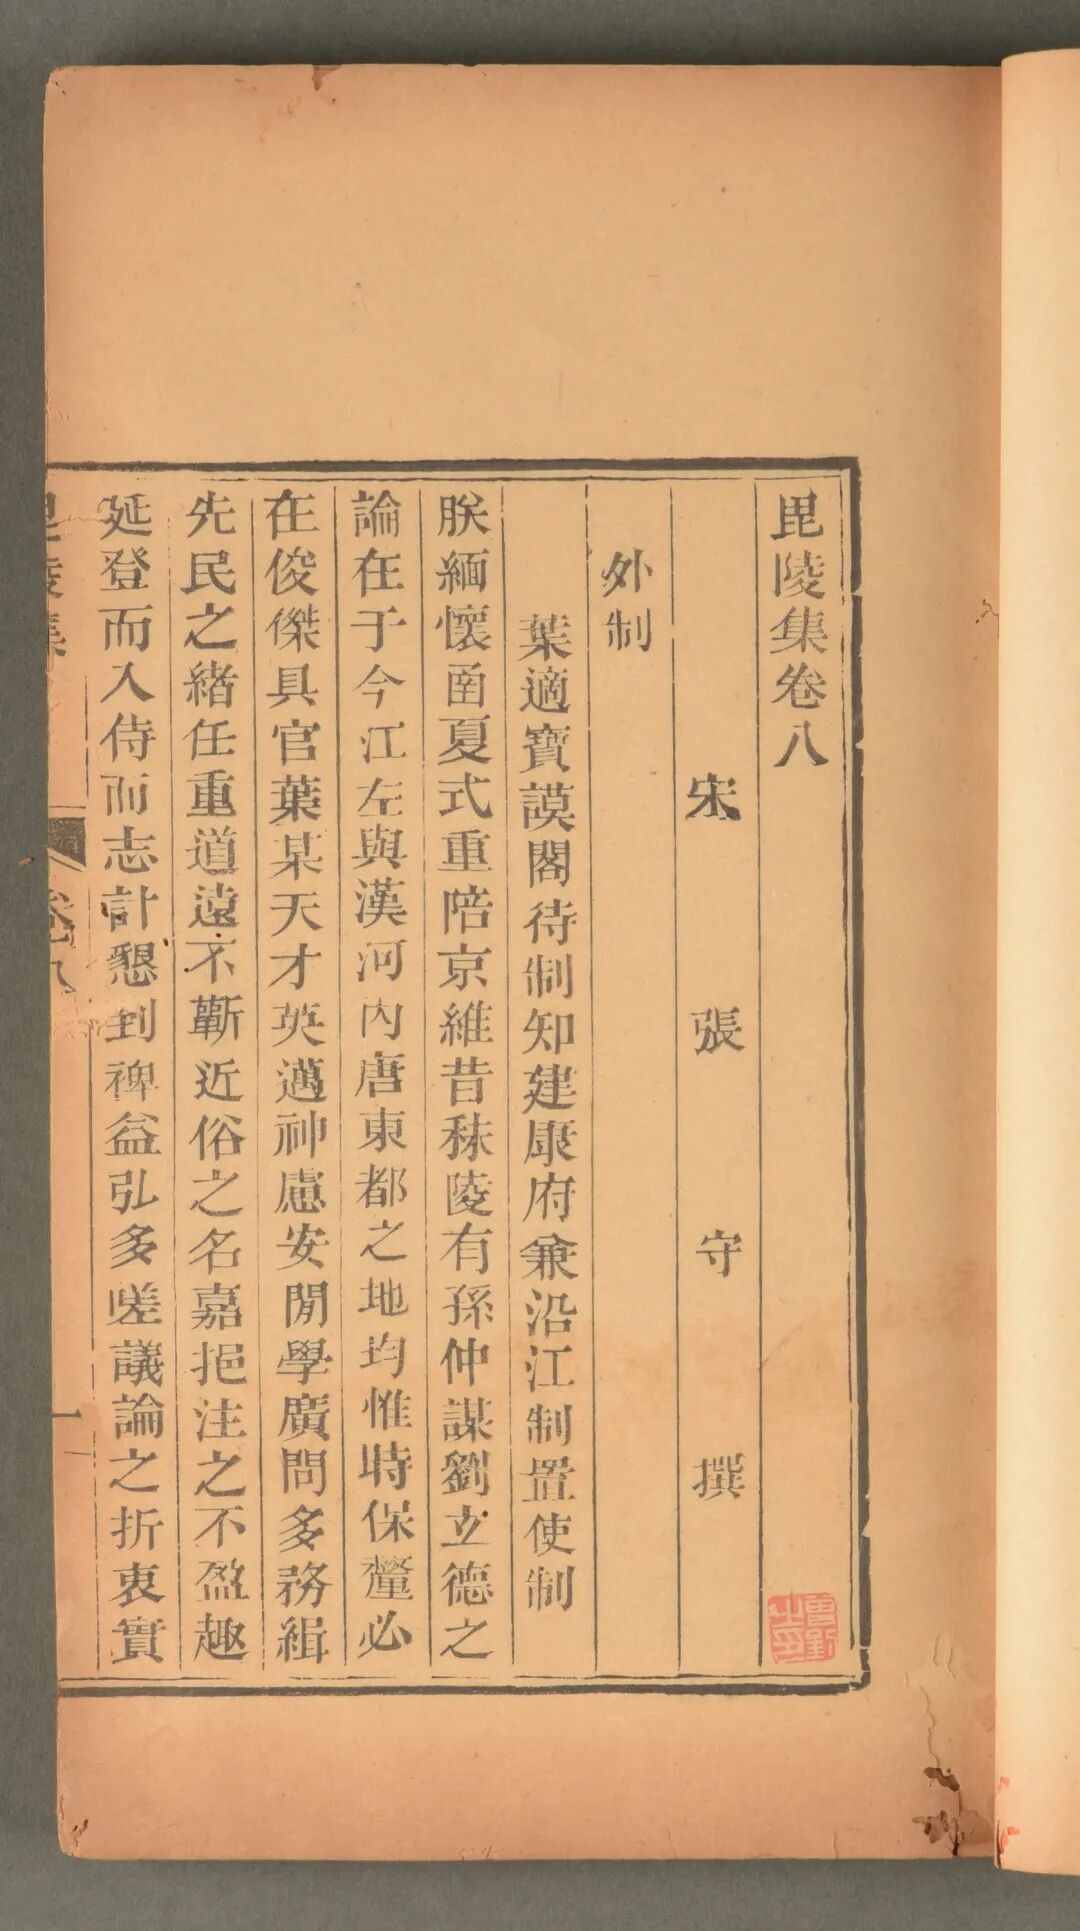 毘陵集卷八
宋 張 守 撰
外制
葉適寶謨閣待制知建康府兼沿江制置使制
朕緬懷函夏式重陪京維昔秣陵有孫仲謀劉立德之
論在于今江左與漢河內唐東都之地均惟時保釐必
在俊傑具官葉某天才英邁神慮安閒學廣問多務緝
先民之緒任重道遠不蘄近俗之名嘉挹注之不盈趣
延登而入侍而志計懇到裨益弘多嗟議論之折衷實
毘陵集 卷八 一